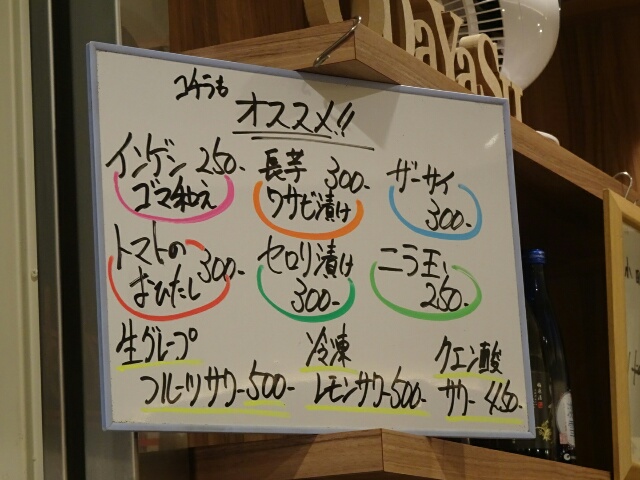 コチラも
オススメ!!
インゲン 250-
ゴマ和え
長芋 300-
ワサビ漬け
ザーサイ
300-
トマトの
おひたし 300-
セロリ漬け
300-
ニラ玉
250-
生グレープ
フルーツサワー500-
冷凍
レモンサワー500-
クエン酸
サワー 450-